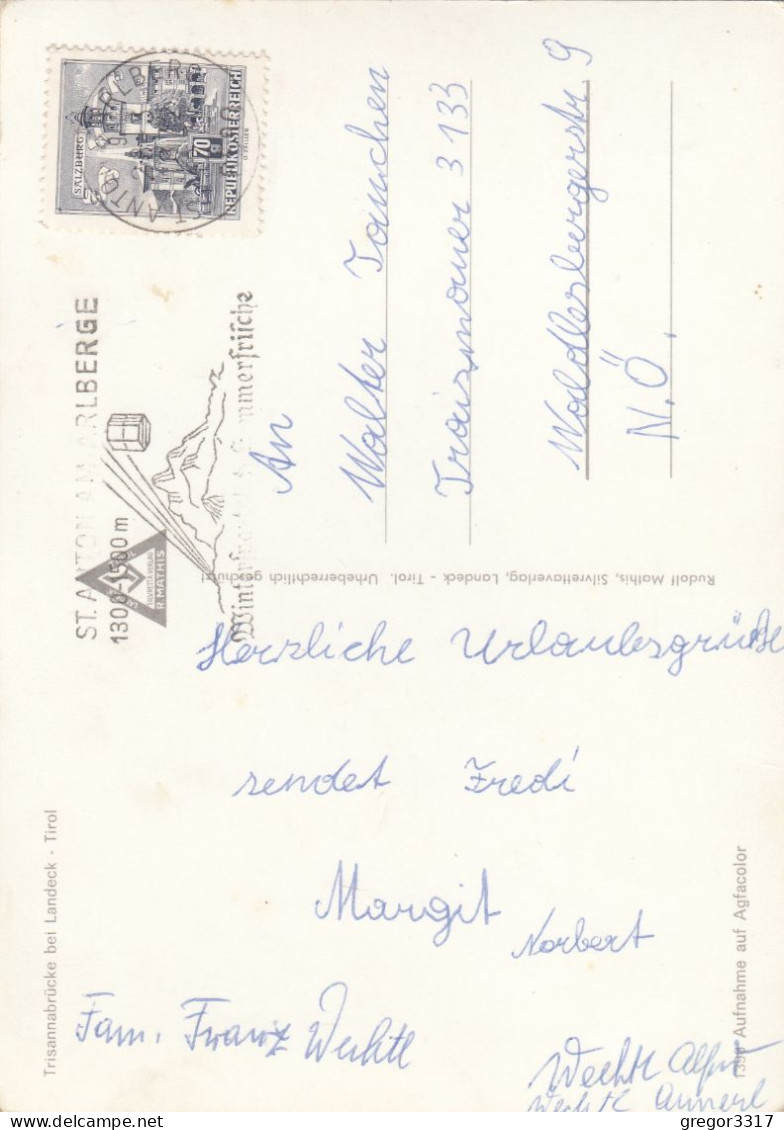 SALZBURG
70 g
REPUBLIK ÖSTERREICH
ST. ANTON ARLBERG
ST. ANTON AM ARLBERGE
1300-1500 m
Sommerfrische
R. MATHIS
An
Walter Tauchen
Traismauer 3133
Waldlesbergerstr. 9
N.Ö.
Rudolf Mathis, Silvrettaverlag, Landeck - Tirol. Urheberrechtlich geschützt
Herzliche Urlaubsgrüße
sendet Fredi
Margit
Norbert
Fam. Franz Wechtl
Wechtl
Wechtl Annerl
Trisannabrücke bei Landeck - Tirol
Aufnahme auf Agfacolor
gregor3317